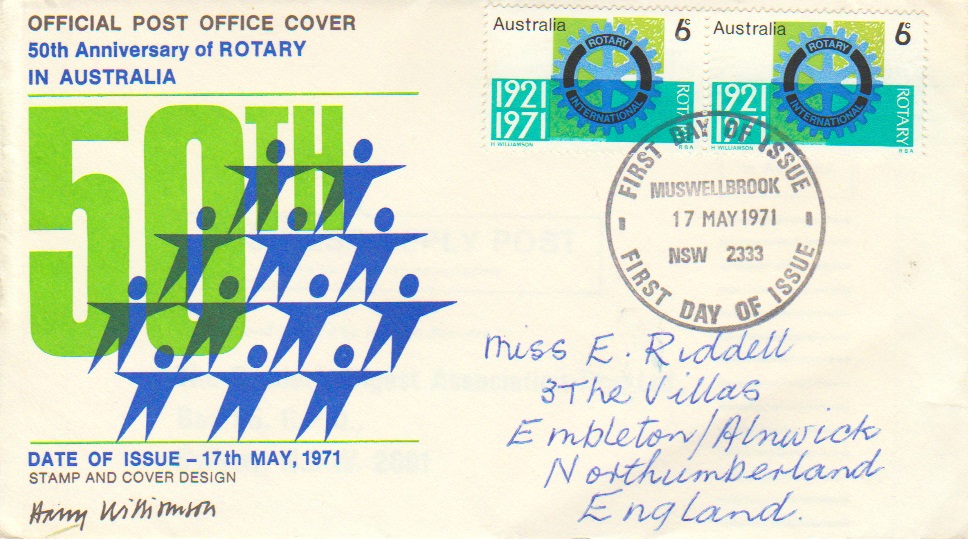 OFFICIAL POST OFFICE COVER
50th Anniversary of ROTARY
IN AUSTRALIA
50TH
DATE OF ISSUE – 17th MAY, 1971
STAMP AND COVER DESIGN
Harry Williamson
Australia 6c
ROTARY
INTERNATIONAL
1921
1971
ROTARY
H WILLIAMSON RBA
Australia 6c
ROTARY
INTERNATIONAL
1921
1971
ROTARY
H WILLIAMSON RBA
FIRST DAY OF ISSUE
MUSWELLBROOK
17 MAY 1971
NSW 2333
FIRST DAY OF ISSUE
Miss E. Riddell
3 The Villas
Embleton/Alnwick
Northumberland
England.